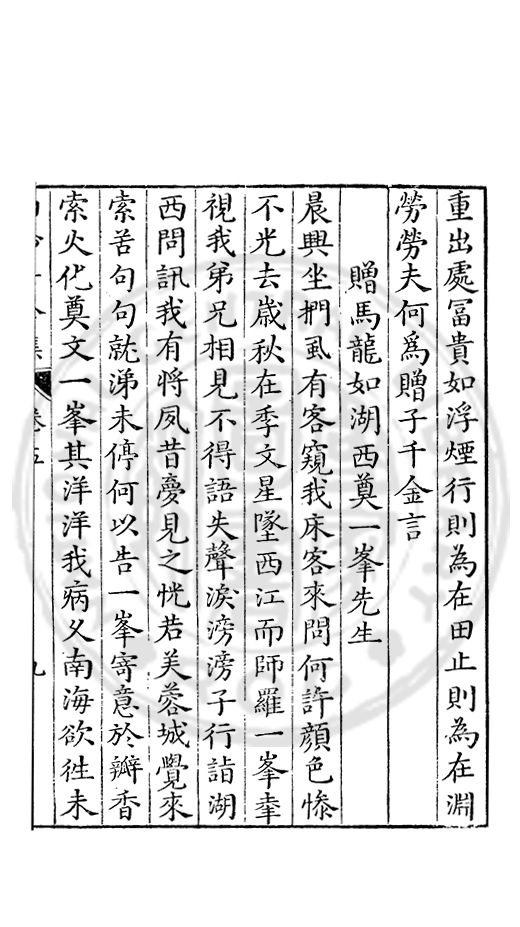 重出處冨貴如浮煙行則為在田止則為在淵
勞勞夫何爲贈子千金言
贈馬龍如湖西奠一峯先生
晨興坐捫虱有客窺我床客來問何許顔色慘
不光去嵗秋在季文星墜西江而師羅一峯辜
視我弟兄相見不得語失聲淚滂滂子行詣湖
西問訊我有將夙昔夢見之恍若芙蓉城覺來
索苦句句就涕未停何以告一峯寄意於瓣香
索火化奠文一峯其洋洋我病乆南海欲徃未
卷五
九